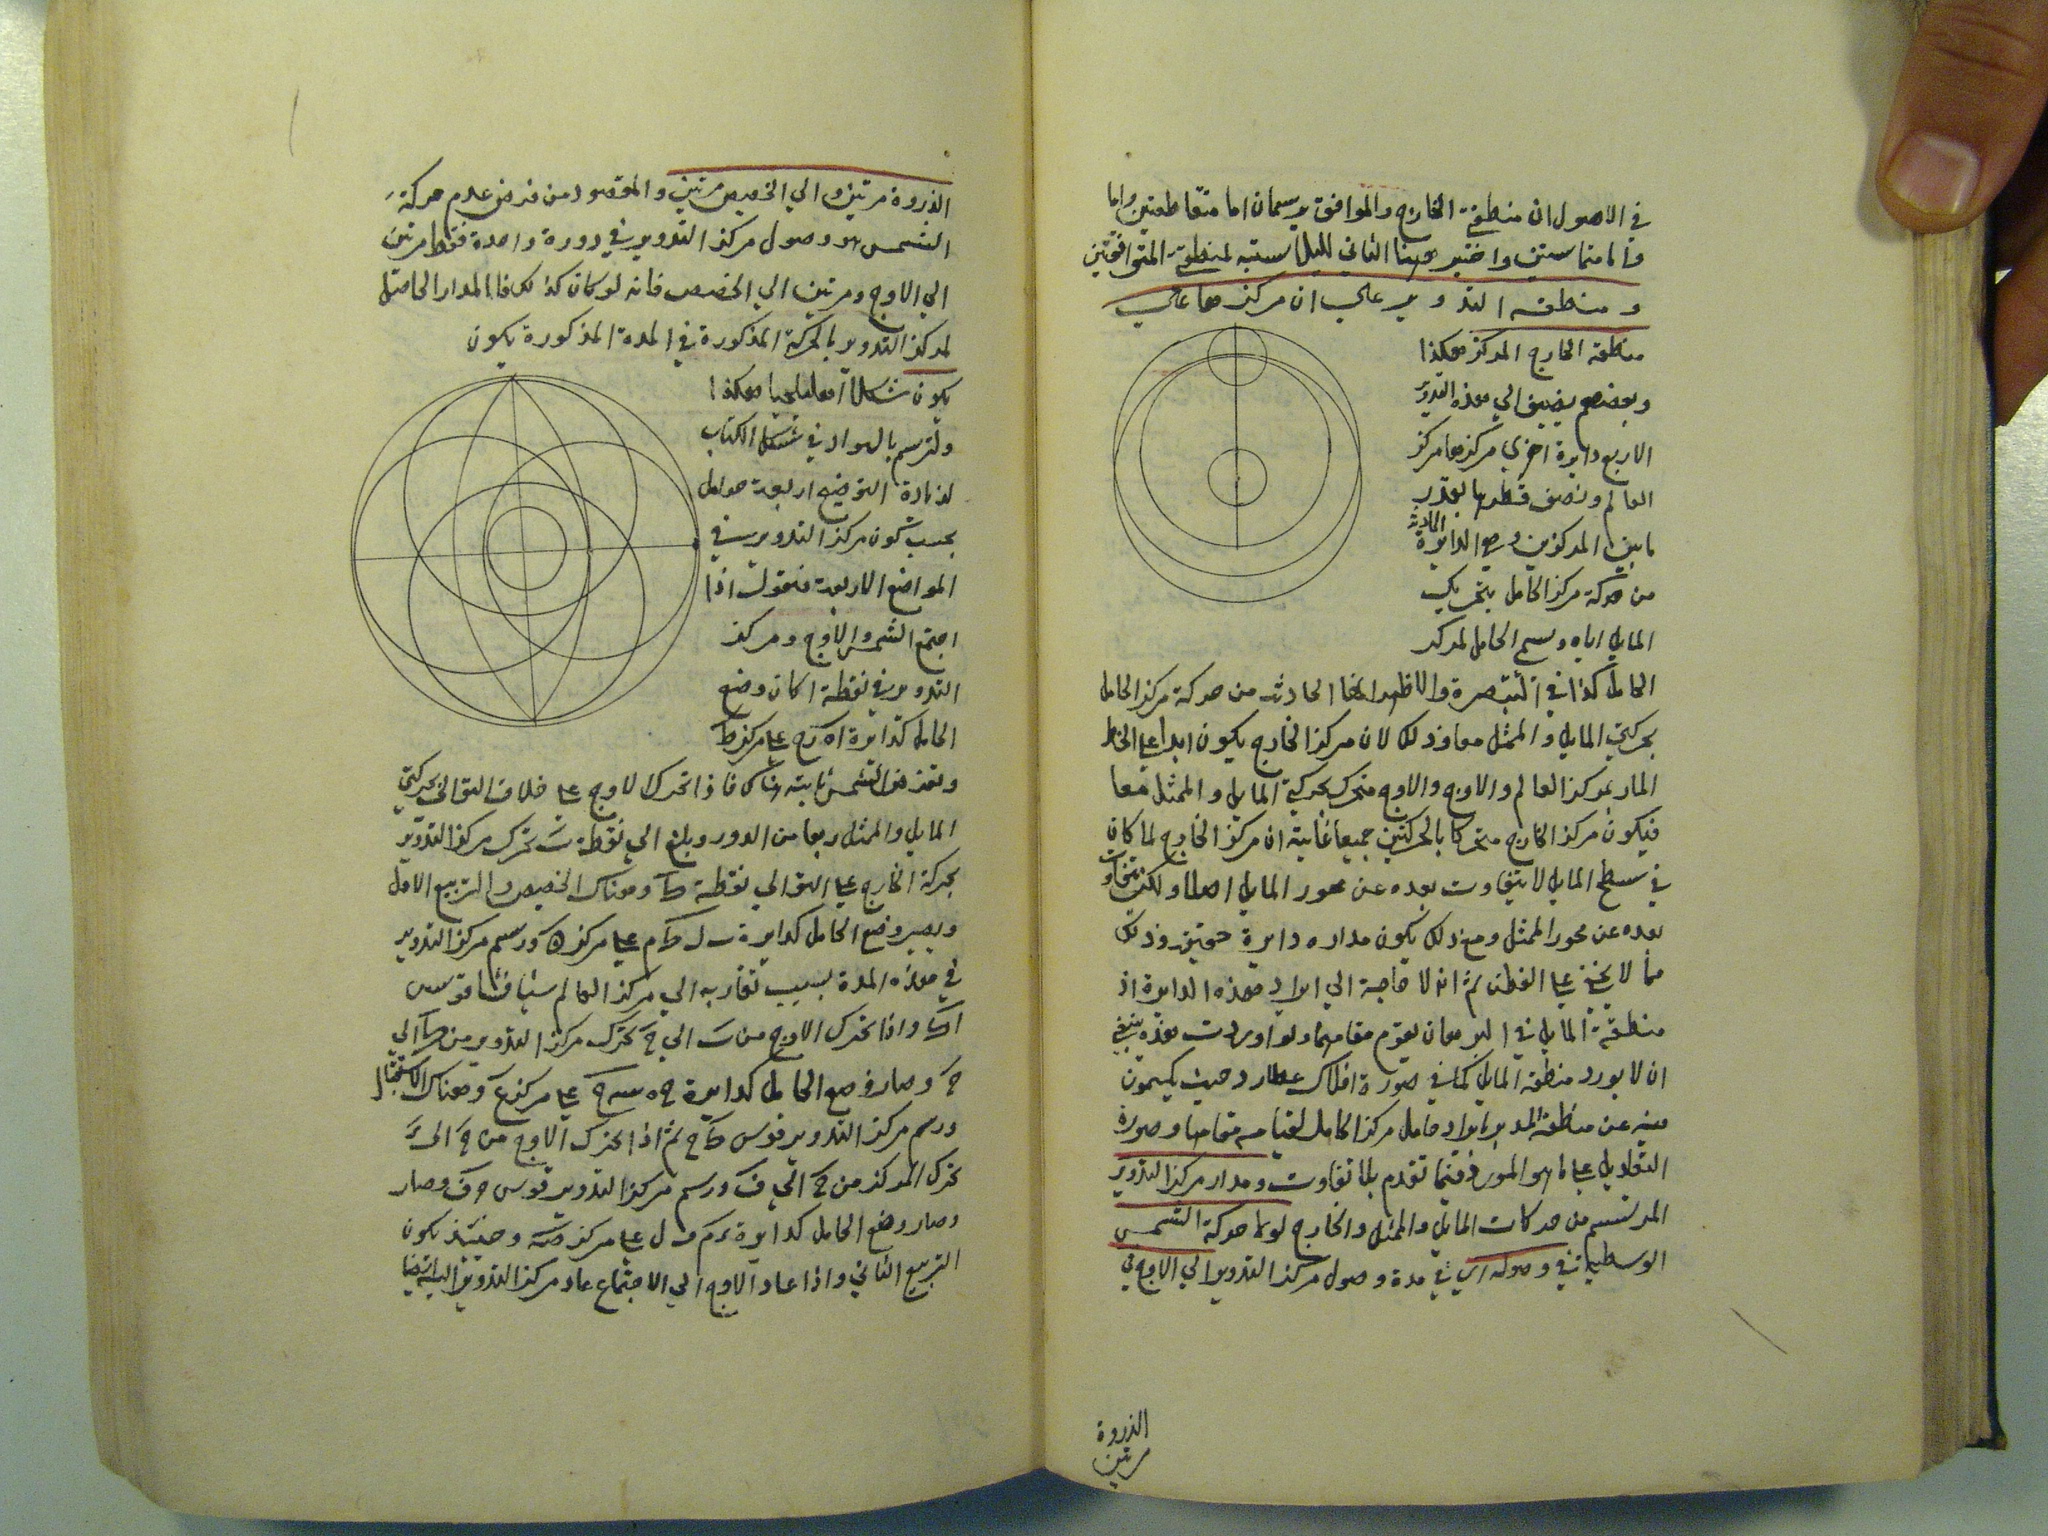 في الاصول ان منطقة الخارج والموافق يرسمان اما متقاطعتين واما
والمتماستين واختير ههنا الثاني لئلا يشتبه لمنطقة المتوافقتين
و منطقة التدوير على ان مركزها على
منطقة الخارج المركز هكذا
وبعضهم يضيف الى هذه الدوائر
الاربع دايرة اخرى مركزها مركز
العالم ونصف قطرها بقدر
ما بين المركزين وهي الدايرة الحادثة
من حركة مركز الحامل بتحريك
المايل اياه وسمي الحامل لمركز
الحامل كذا في التبصرة والاظهر انها الحادثة من حركة مركز الحامل
بحركتي المايل والممثل معا وذلك لان مركز الخارج يكون ابدا على الخط
المار بمركز العالم والاوج والاوج متحرك بحركة المايل والممثل معا
فيكون مركز الخارج متحركا بالحركتين جميعا غايته ان مركز الخارج لما كان
في سطح المايل لا يتفاوت بعده عن محور المايل اصلا ولكن يتفاوت
بعده عن محور الممثل ومع ذلك يكون مداره دايرة حقيقة وذلك
مما لا يخفى على الفطن ثم انه لا حاجة الى ايراد هذه الدايرة اذ
منطقة المايل في يقوم مقامها ولو اوردت هذه ينبغي
ان لا يورد منطقة المايل كما في صورة افلاك عطارد حيث يكتفون
فيه عن منطقة المدير بايراد حامل مركز الحامل لقيامه مقامها وصورة
التعاديل على ما هو المورد فيما تقدم بلا تفاوت ومدار مركز التدوير
المرتسم من حركات المايل والممثل والخارج لولا حركة الشمس
الوسطية في وصوله اي في مدة وصول مركز التدوير الى الاوج في
الذروة
مرتين
الذروة مرتين والى الحضيض مرتين والمقصود من فرض عدم حركة
الشمس هو وصول مركز التدوير في دورة واحدة فقط مرتين
الى الاوج ومرتين الى الحضيض فانه لو كان كذلك فالمدار الحاصل
لمركز التدوير بالحركة المذكورة في المدة المذكورة يكون
يكون شكلا اهليلجيا هكذا
ولترسم بالسواد في شكل الكتاب
لزيادة التوضيح اربعة حوامل
بحسب كون مركز التدوير في
المواضع الاربعة فنقول اذا
اجتمع الشمس والاوج ومركز
التدوير في نقطة ا كان وضع
الحامل كدايرة على مركز ط
ونفرض الشمس ثابتة هناك فاذا تحرك الاوج على خلاف التوالي بحركتي
المايل والممثل ربعا من الدور وبلغ الى نقطة ب تحرك مركز التدوير
بحركة الخارج على التوالي نقطة وهناك الحضيض والتربيع الاول
ويصير وضع الحامل كدايرة على مركز ورسم مركز التدوير
في هذه المدة بسبب تقاربه الى مركز العالم شيئا فشيئا قوس
واذا تحرك الاوج من ب الى ج تحرك مركز التدوير من الى
ج وصار وضع الحامل كدايرة على مركز ع وهناك الاستقبال
ورسم مركز التدوير قوس ثم اذا تحرك الاوج من ج الى
تحرك المركز من ج الى ف ورسم مركز التدوير قوس ج ف وصار
وصار وضع الحامل كدايرة على مركز وحينئذ يكون
التربيع الثاني واذا عاد الاوج الى الاجتماع عاد مركز التدوير اليه ايضا